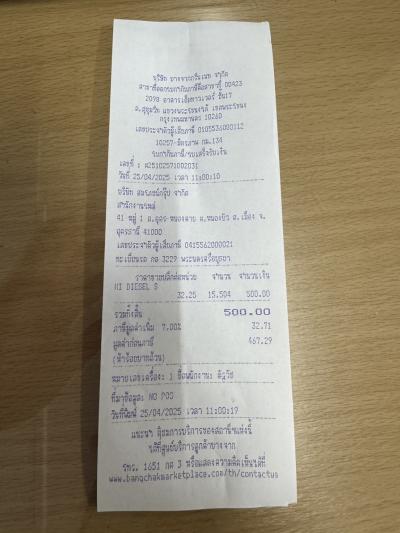 บริษัท บางจากกรีนเนท จำกัด
สาขาที่ออกใบกำกับภาษีคือสาขาที่ 00423
2098 อาคารเอ็มทาวเวอร์ ชั้น17
ถ.สุขุมวิท แขวงพระโขนงใต้ เขตพระโขนง
กรุงเทพมหานคร 10260
เลขประจำตัวผู้เสียภาษี 0105536000112
10257-มิตรภาพ กม.134
ใบกำกับภาษี/ใบเสร็จรับเงิน
เลขที่ :
วันที่ 25/04/2025 เวลา 11:00:10
บริษัท จำกัด
สำนักงานใหญ่
41 หมู่ 1 ถ.อุดร-หนองคาย ต.หนองบัว อ.เมือง จ.
อุดรธานี 41000
เลขประจำตัวผู้เสียภาษี 0415562000021
ทะเบียนรถ กล 3229 พระนครศรีอยุธยา
ราคาขายปลีกต่อหน่วย จำนวน จำนวนเงิน
HI DIESEL S
32.25 15.504 500.00
รวมทั้งสิ้น 500.00
ภาษีมูลค่าเพิ่ม 7.00% 32.71
มูลค่าก่อนภาษี 467.29
(ห้าร้อยบาทถ้วน)
หมายเลขเครื่อง: 1 ชื่อพนักงาน:
ที่มาข้อมูล: NO POS
วันที่พิมพ์ 25/04/2025 เวลา 11:00:19
แนะนำ ติชมการบริการของสถานีฯแห่งนี้
ได้ที่ศูนย์บริการลูกค้าบางจาก
โทร. 1651 กด 3 หรือแสดงความคิดเห็นได้ที่
www.bangchakmarketplace.com/th/contactus